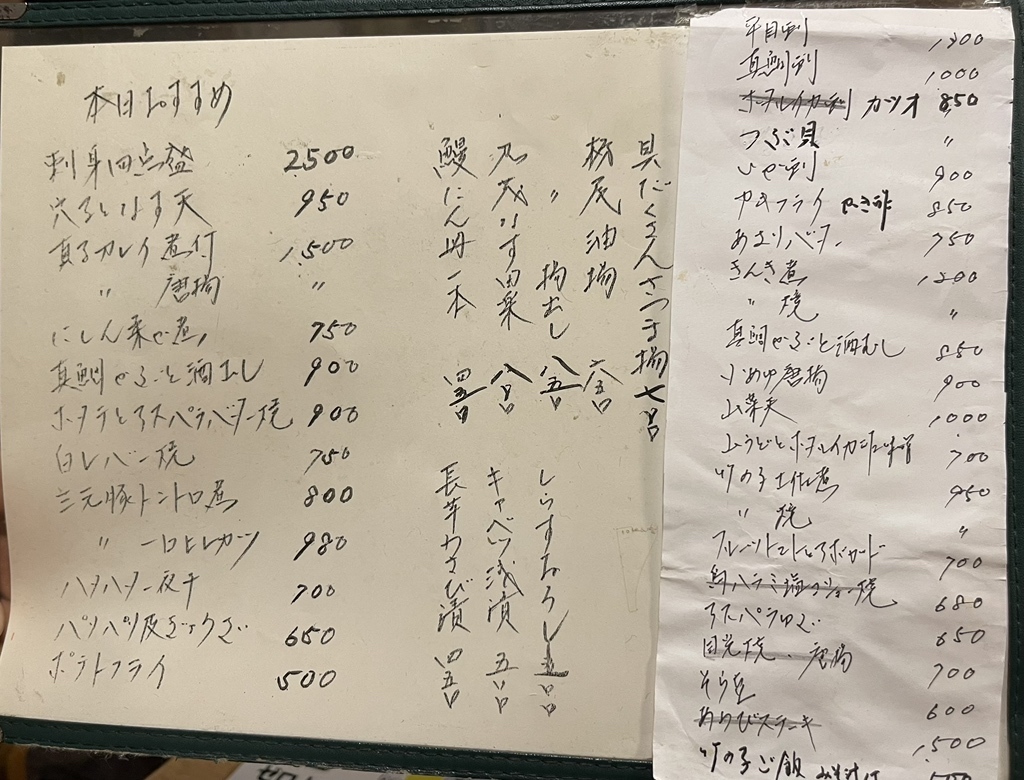 本日おすすめ
刺身四点盛 2500
穴子となす天 950
真子カレイ煮付 1,500
〃 唐揚 〃
にしん柔か煮 750
真鯛かぶと酒むし 900
ホタテとアスパラバター焼 900
白レバー焼 750
三元豚トントロ煮 800
〃 一口ヒレカツ 980
ハタハタ一夜干 700
パリパリ皮ギョウザ 650
ポテトフライ 500
具だくさんさつま揚 七〇〇
栃尾油揚 六五〇
〃 揚出し 八五〇
丸茂なす田楽 八〇〇
鰻にんにく一本
しらすおろし 五〇〇
キャベツ浅漬 五〇〇
長芋わさび漬 四五〇
平目刺 1,200
真鯛刺 1000
ホタルイカ刺 カツオ 850
つぶ貝 〃
900
カキフライ カキ酢 850
あさりバター 750
きんき煮 1,200
〃 焼 〃
真鯛かぶと酒むし 850
唐揚 900
山菜天 1000
山うどとホタルイカ酢味噌 700
竹の子土佐煮 950
〃 焼 〃
フルーツトマトとアボカード 700
鳥ハラミ塩コショー焼 680
アスパラゆで 650
目光焼、唐揚 700
そら豆 600
あわびステーキ 1,500
竹の子ご飯 みそ汁付